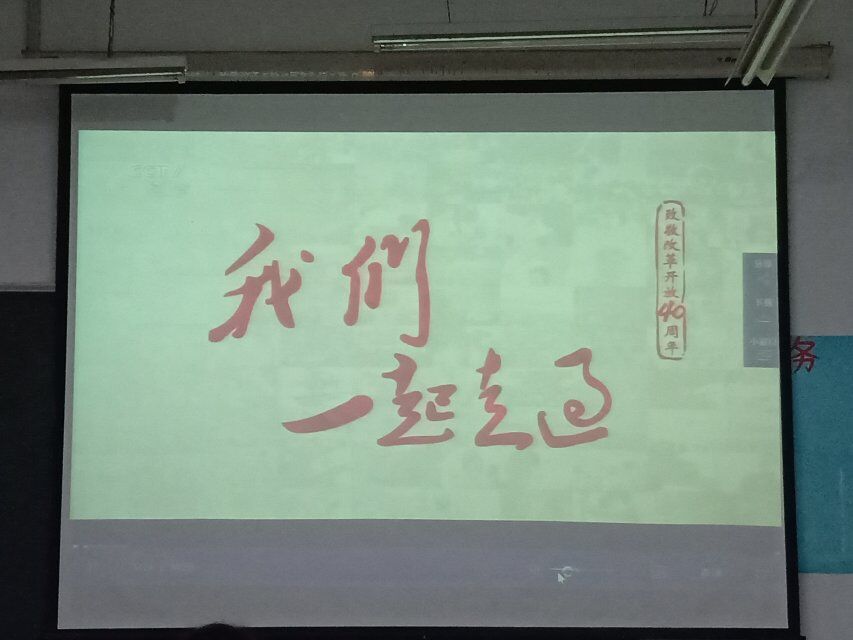 我们
一起走过
致敬改革开放40周年
务